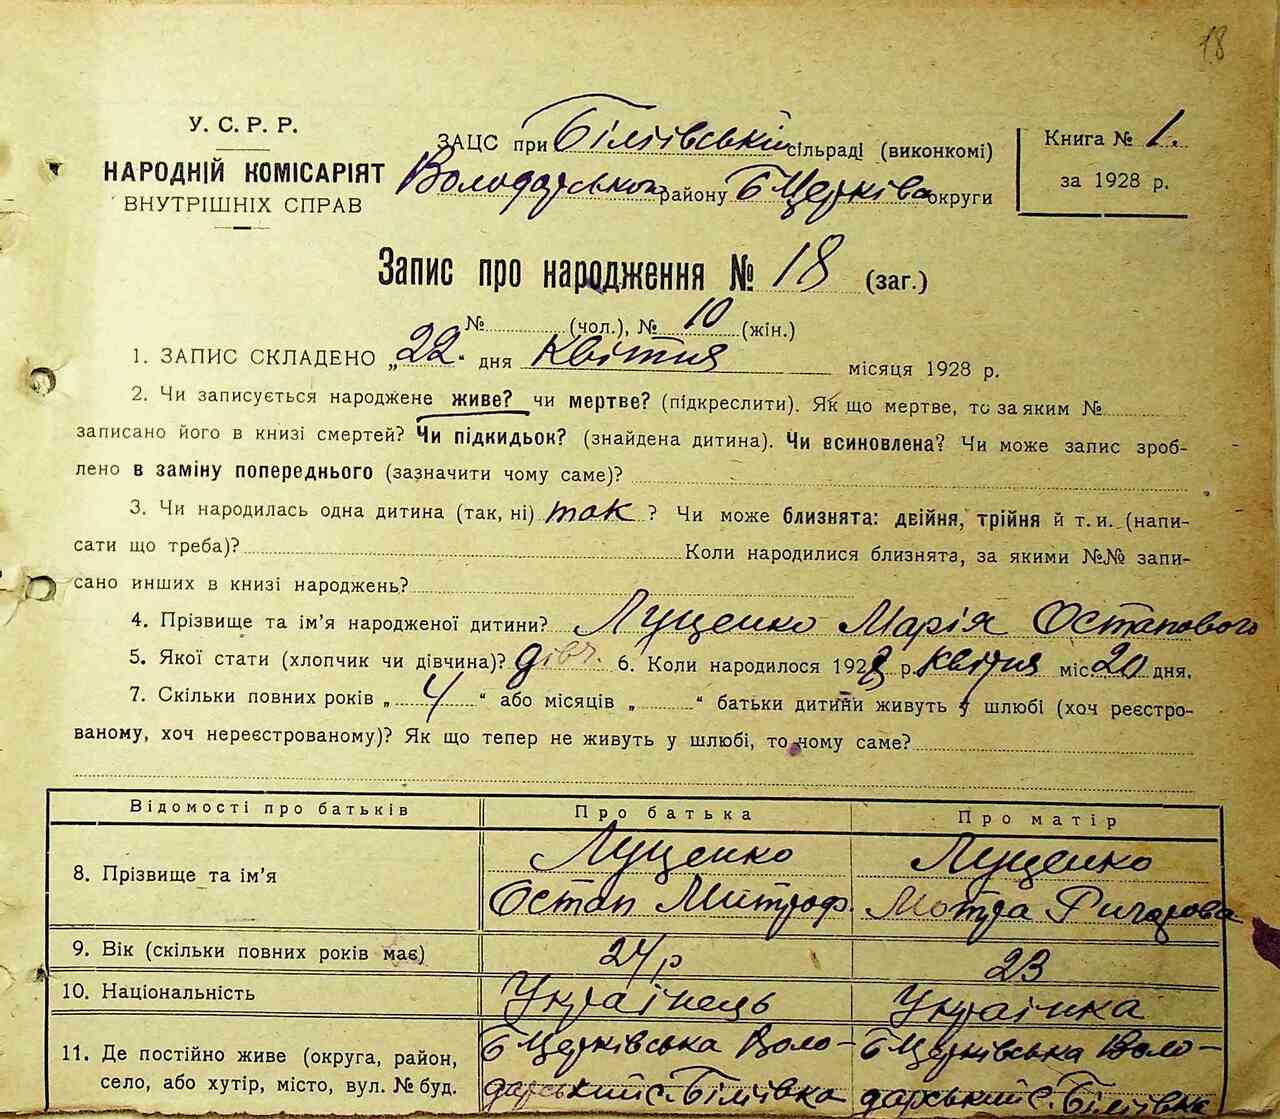 18
У. С. Р. Р.
НАРОДНІЙ КОМІСАРІЯТ
ВНУТРІШНІХ СПРАВ
ЗАЦС при Біліївській сільраді (виконкомі)
Володарськ. району Б Церківс округи
Книга № 1.
за 1928 р.
Запис про народження № 18 (заг.)
№ (чол.), № 10 (жін.)
1. ЗАПИС СКЛАДЕНО „22“ дня Квітня місяця 1928 р.
2. Чи записується народжене живе? чи мертве? (підкреслити). Як що мертве, то за яким №
записано його в книзі смертей? Чи підкидьок? (знайдена дитина). Чи всиновлена? Чи може запис зроб-
лено в заміну попереднього (зазначити чому саме)?
3. Чи народилась одна дитина (так, ні) так ? Чи може близнята: двійня, трійня й т. и. (напи-
сати що треба)? Коли народилися близнята, за якими №№ запи-
сано инших в книзі народжень?
4. Прізвище та ім'я народженої дитини? Луценко Марія Остапового
5. Якої стати (хлопчик чи дівчина)? дівч. 6. Коли народилося 1928 р. квітня міс. 20 дня.
7. Скільки повних років „ 4 “ або місяців „ “ батьки дитини живуть у шлюбі (хоч реєстро-
ваному, хоч нереєстрованому)? Як що тепер не живуть у шлюбі, то чому саме?
Відомості про батьків Про батька Про матір
8. Прізвище та ім'я
Луценко
Остап Митроф.
Луценко
Мотря
9. Вік (скільки повних років має) 24 р 23
10. Національність Українець Українка
11. Де постійно живе (округа, район,
село, або хутір, місто, вул. № буд.
Б Церківська Воло-
дарський с. Біліївка
Б Церківська Воло-
дарський с. Біліївка